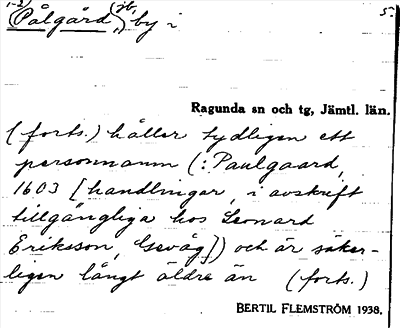 1-2) jb, 5.
(Pålgård,) by i
Ragunda sn och tg, Jämtl. län.
(forts.) håller tydligen ett
personnamn (: Paulgaard,
1603 [handlingar, i avskrift
tillgängliga hos Leonard
Eriksson, Gevåg]) och är säker-
ligen långt äldre än (forts.)
BERTIL FLEMSTRÖM 1938.